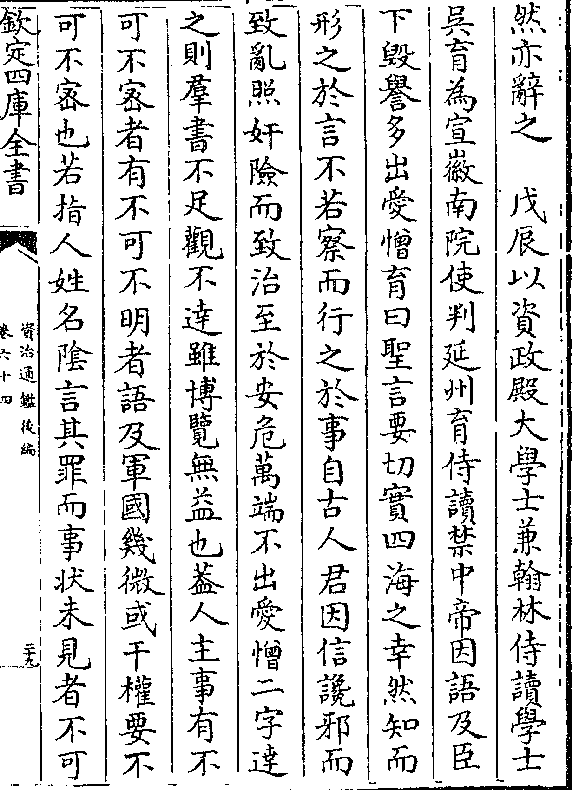 然亦辭之　戊辰以資政殿大學士兼翰林侍讀學士
吳育為宣徽南院使判延州育侍讀禁中帝因語及臣
下毀譽多出愛憎育曰聖言要切實四海之幸然知而
形之於言不若察而行之於事自古人君因信讒邪而
致亂照奸險而致治至於安危萬端不出愛憎二字達
之則羣書不足觀不達雖博覽無益也葢人主事有不
可不宻者有不可不明者語及軍國幾微或干權要不
可不宻也若指人姓名隂言其罪而事状未見者不可
欽定四庫全書
資治通鑑後編
卷六十四
二十九